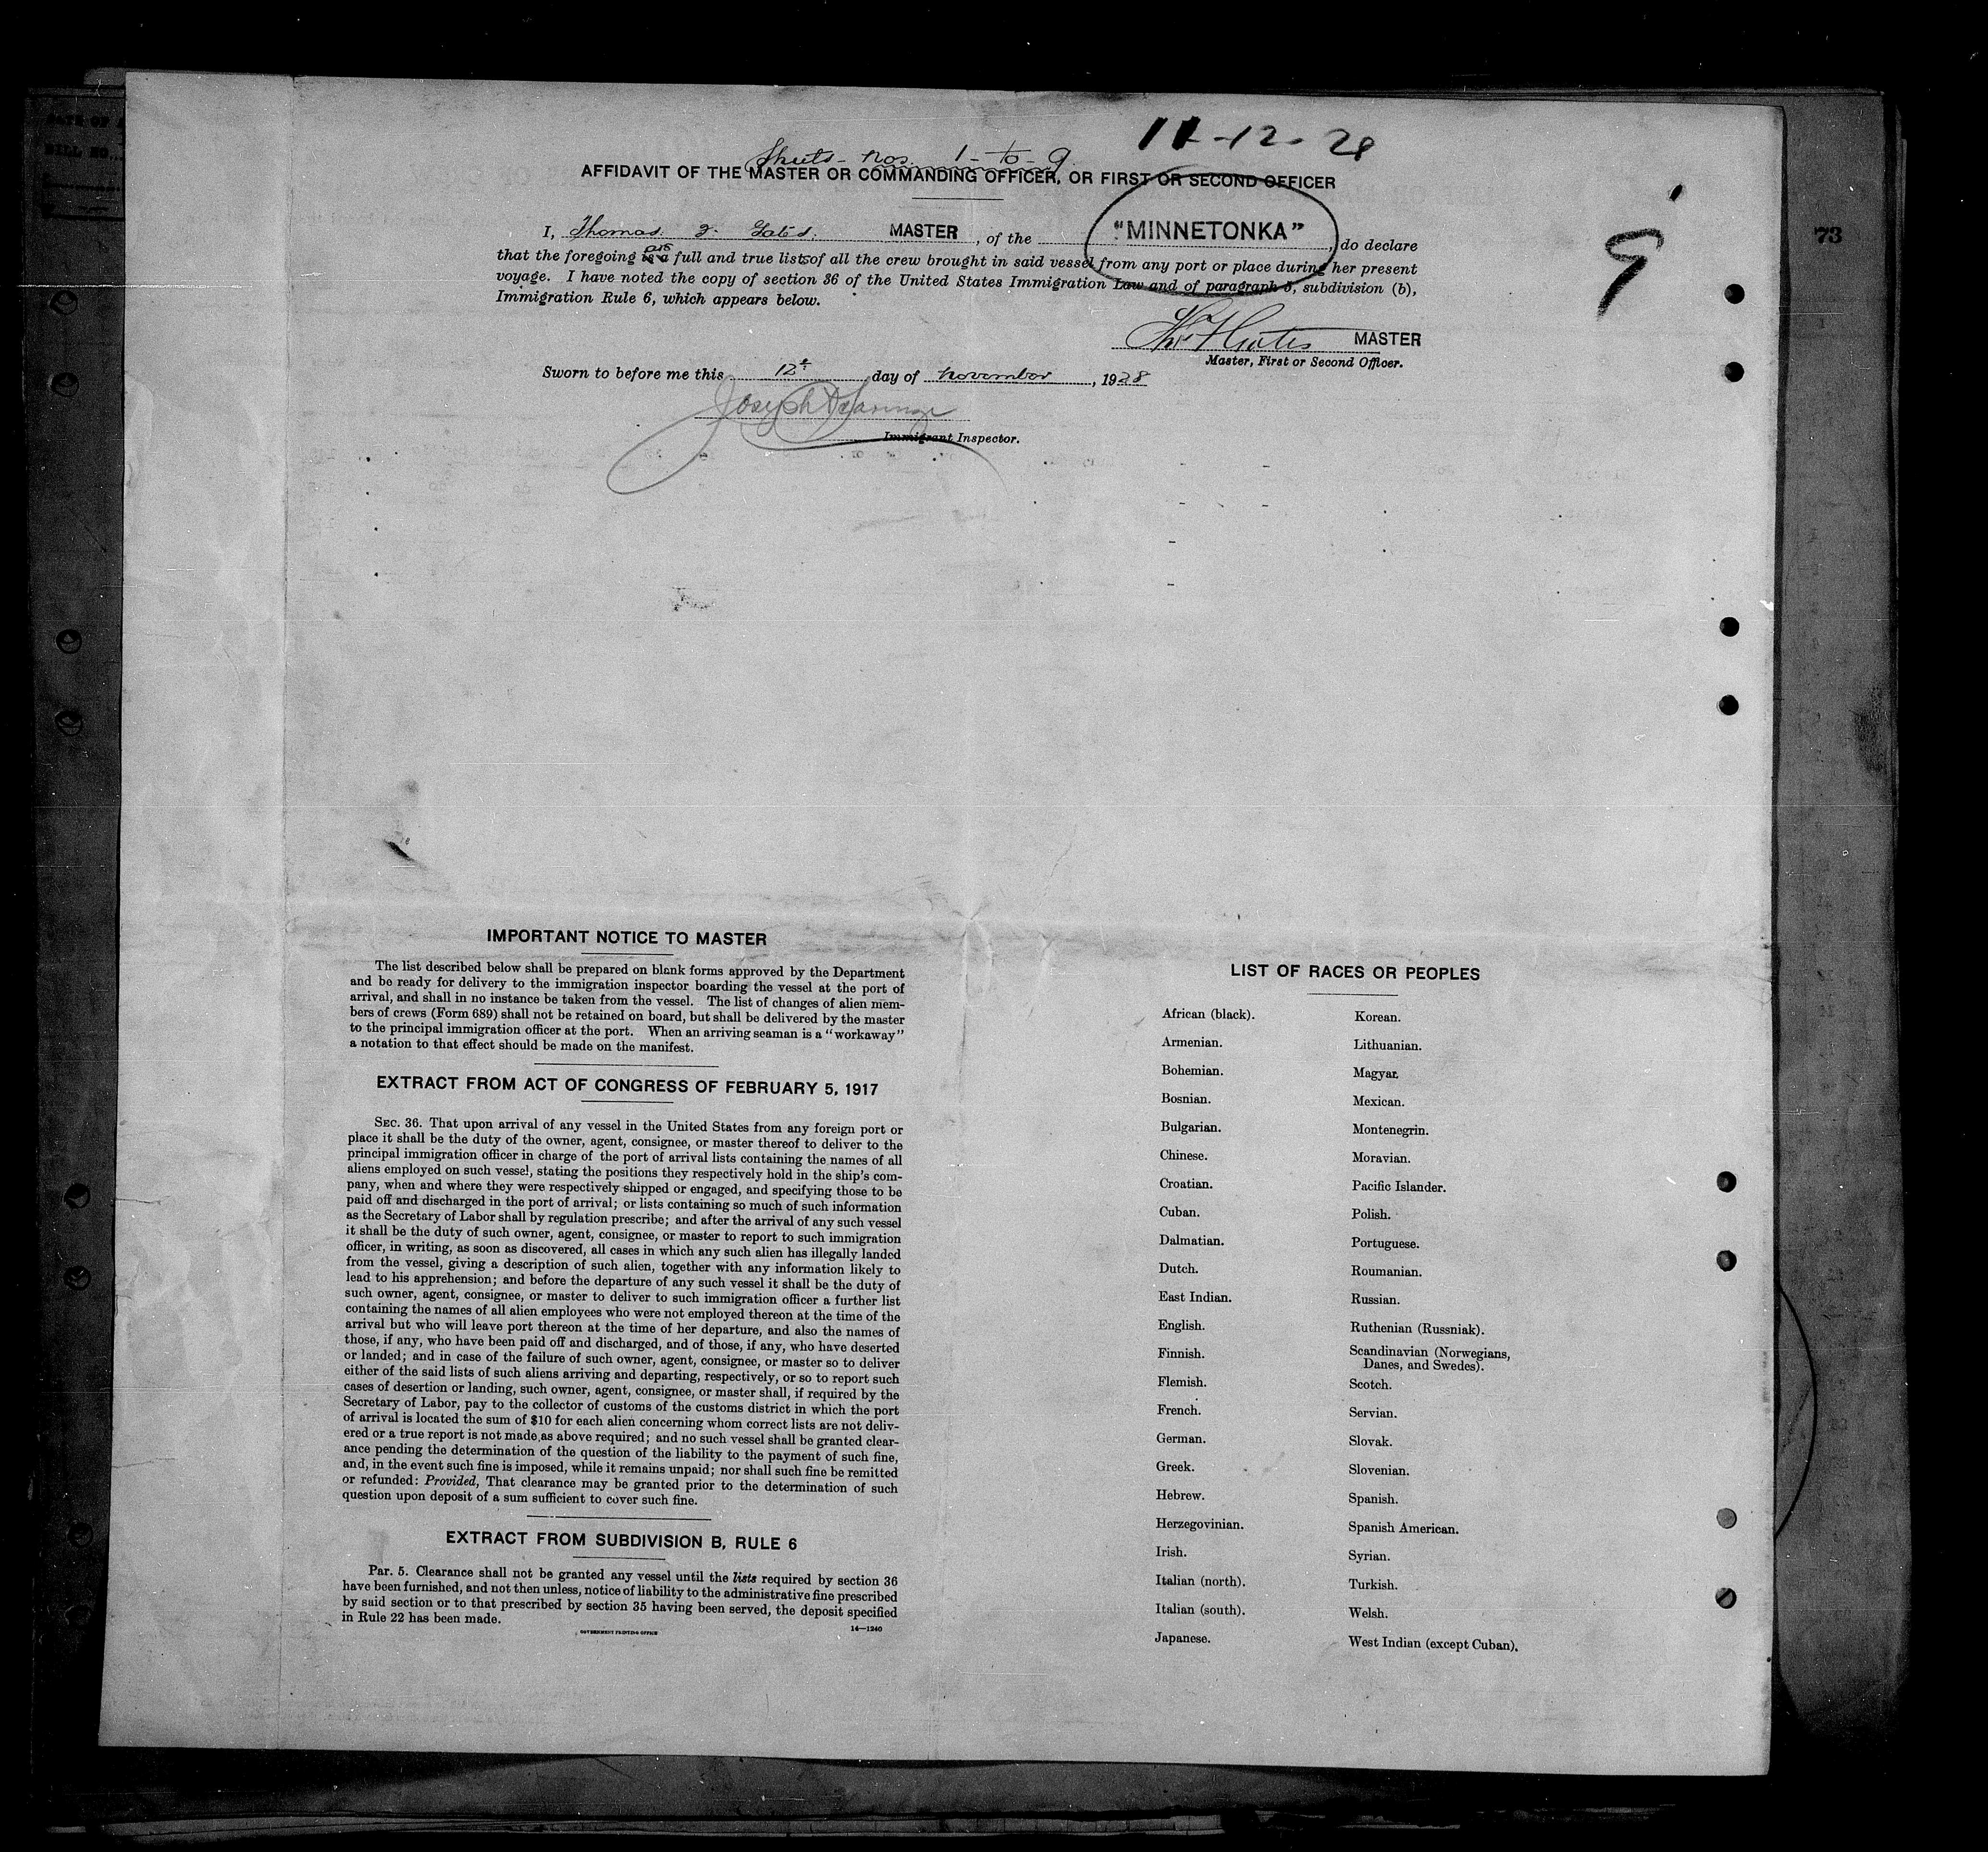 11-12-28
Sheets - Nos. 1 - to - 9.
AFFIDAVIT OF THE MASTER OR COMMANDING OFFICER, OR FIRST OR SECOND OFFICER
9
73
I, Thomas F. Gates. MASTER, of the "MINNETONKA", do declare
that the foregoing is a are full and true lists of all the crew brought in said vessel from any port or place during her present
voyage. I have noted the copy of section 36 of the United States Immigration Law and of paragraph 5, subdivision (b),
Immigration Rule 6, which appears below.
Thos F Gates MASTER
Master, First or Second Officer.
Sworn to before me this 12th day of November, 1928
Joseph
Immigrant Inspector.
IMPORTANT NOTICE TO MASTER
The list described below shall be prepared on blank forms approved by the Department
and be ready for delivery to the immigration inspector boarding the vessel at the port of
arrival, and shall in no instance be taken from the vessel. The list of changes of alien mem-
bers of crews (Form 689) shall not be retained on board, but shall be delivered by the master
to the principal immigration officer at the port. When an arriving seaman is a "workaway"
a notation to that effect should be made on the manifest.
EXTRACT FROM ACT OF CONGRESS OF FEBRUARY 5, 1917
SEC. 36. That upon arrival of any vessel in the United States from any foreign port or
place it shall be the duty of the owner, agent, consignee, or master thereof to deliver to the
principal immigration officer in charge of the port of arrival lists containing the names of all
aliens employed on such vessel, stating the positions they respectively hold in the ship's com-
pany, when and where they were respectively shipped or engaged, and specifying those to be
paid off and discharged in the port of arrival; or lists containing so much of such information
as the Secretary of Labor shall by regulation prescribe; and after the arrival of any such vessel
it shall be the duty of such owner, agent, consignee, or master to report to such immigration
officer, in writing, as soon as discovered, all cases in which any such alien has illegally landed
from the vessel, giving a description of such alien, together with any information likely to
lead to his apprehension; and before the departure of any such vessel it shall be the duty of
such owner, agent, consignee, or master to deliver to such immigration officer a further list
containing the names of all alien employees who were not employed thereon at the time of the
arrival but who will leave port thereon at the time of her departure, and also the names of
those, if any, who have been paid off and discharged, and of those, if any, who have deserted
or landed; and in case of the failure of such owner, agent, consignee, or master so to deliver
either of the said lists of such aliens arriving and departing, respectively, or so to report such
cases of desertion or landing, such owner, agent, consignee, or master shall, if required by the
Secretary of Labor, pay to the collector of customs of the customs district in which the port
of arrival is located the sum of $10 for each alien concerning whom correct lists are not deliv-
ered or a true report is not made as above required; and no such vessel shall be granted clear-
ance pending the determination of the question of the liability to the payment of such fine,
and, in the event such fine is imposed, while it remains unpaid; nor shall such fine be remitted
or refunded: Provided, That clearance may be granted prior to the determination of such
question upon deposit of a sum sufficient to cover such fine.
EXTRACT FROM SUBDIVISION B, RULE 6
Par. 5. Clearance shall not be granted any vessel until the lists required by section 36
have been furnished, and not then unless, notice of liability to the administrative fine prescribed
by said section or to that prescribed by section 35 having been served, the deposit specified
in Rule 22 has been made.
GOVERNMENT PRINTING OFFICE 14—1240
LIST OF RACES OR PEOPLES
African (black).
Armenian.
Bohemian.
Bosnian.
Bulgarian.
Chinese.
Croatian.
Cuban.
Dalmatian.
Dutch.
East Indian.
English.
Finnish.
Flemish.
French.
German.
Greek.
Hebrew.
Herzegovinian.
Irish.
Italian (north).
Italian (south).
Japanese.
Korean.
Lithuanian.
Magyar.
Mexican.
Montenegrin.
Moravian.
Pacific Islander.
Polish.
Portuguese.
Roumanian.
Russian.
Ruthenian (Russniak).
Scandinavian (Norwegians,
Danes, and Swedes).
Scotch.
Servian.
Slovak.
Slovenian.
Spanish.
Spanish American.
Syrian.
Turkish.
Welsh.
West Indian (except Cuban).